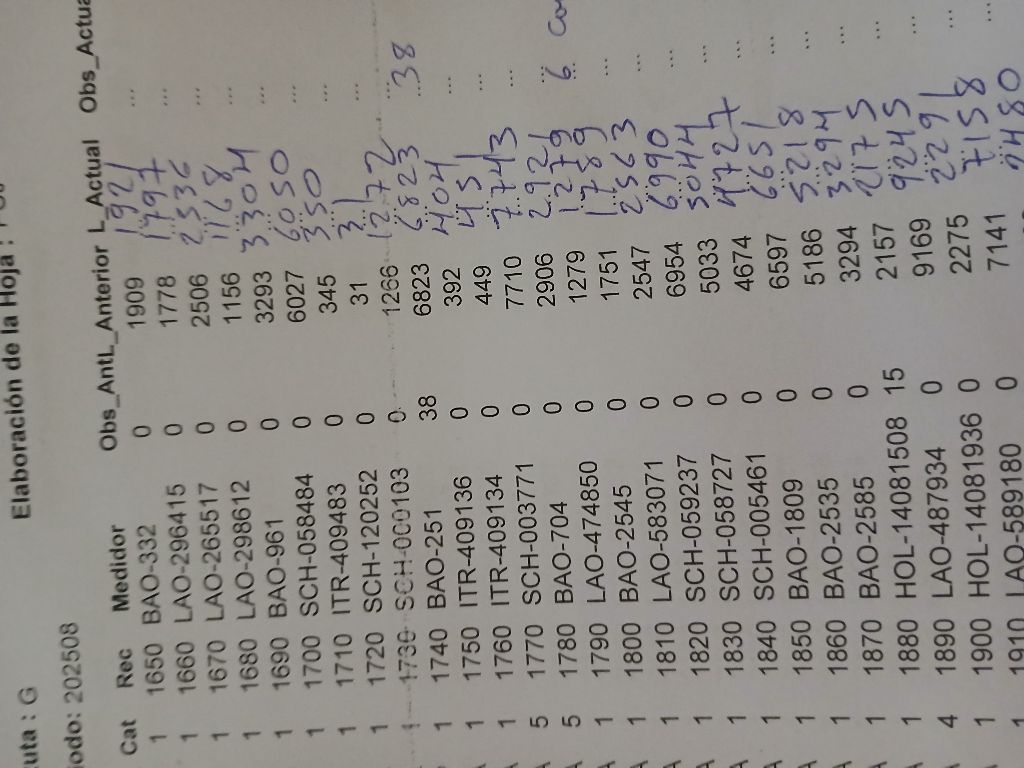 Elaboración de la Hoja :
uta : G
iodo: 202508
Cat Rec Medidor Obs_AntL_Anterior L_Actual Obs_Actua
1 1650 BAO-332 0 1909 1921 ...
1 1660 LAO-296415 0 1778 1797 ...
1 1670 LAO-265517 0 2506 2536 ...
1 1680 LAO-298612 0 1156 1168 ...
1 1690 BAO-961 0 3293 3304 ...
1 1700 SCH-058484 0 6027 6050 ...
1 1710 ITR-409483 0 345 350 ...
1 1720 SCH-120252 0 31 31 ...
1 1730 SCH-000103 0 1266 1272 ...
1 1740 BAO-251 38 6823 6823 38
1 1750 ITR-409136 0 392 404 ...
1 1760 ITR-409134 0 449 451 ...
5 1770 SCH-003771 0 7710 7743 ...
5 1780 BAO-704 0 2906 2921 ...
1 1790 LAO-474850 0 1279 1279 6
1 1800 BAO-2545 0 1751 1789 ...
1 1810 LAO-583071 0 2547 2563 ...
1 1820 SCH-059237 0 6954 6990 ...
1 1830 SCH-058727 0 5033 5044 ...
1 1840 SCH-005461 0 4674 4727 ...
1 1850 BAO-1809 0 6597 6651 ...
1 1860 BAO-2535 0 5186 5218 ...
1 1870 BAO-2585 0 3294 3294 ...
1 1880 HOL-14081508 15 2157 2175 ...
4 1890 LAO-487934 0 9169 9245 ...
1 1900 HOL-14081936 0 2275 2291 ...
1 1910 LAO-589180 0 7141 7158 ...
2480